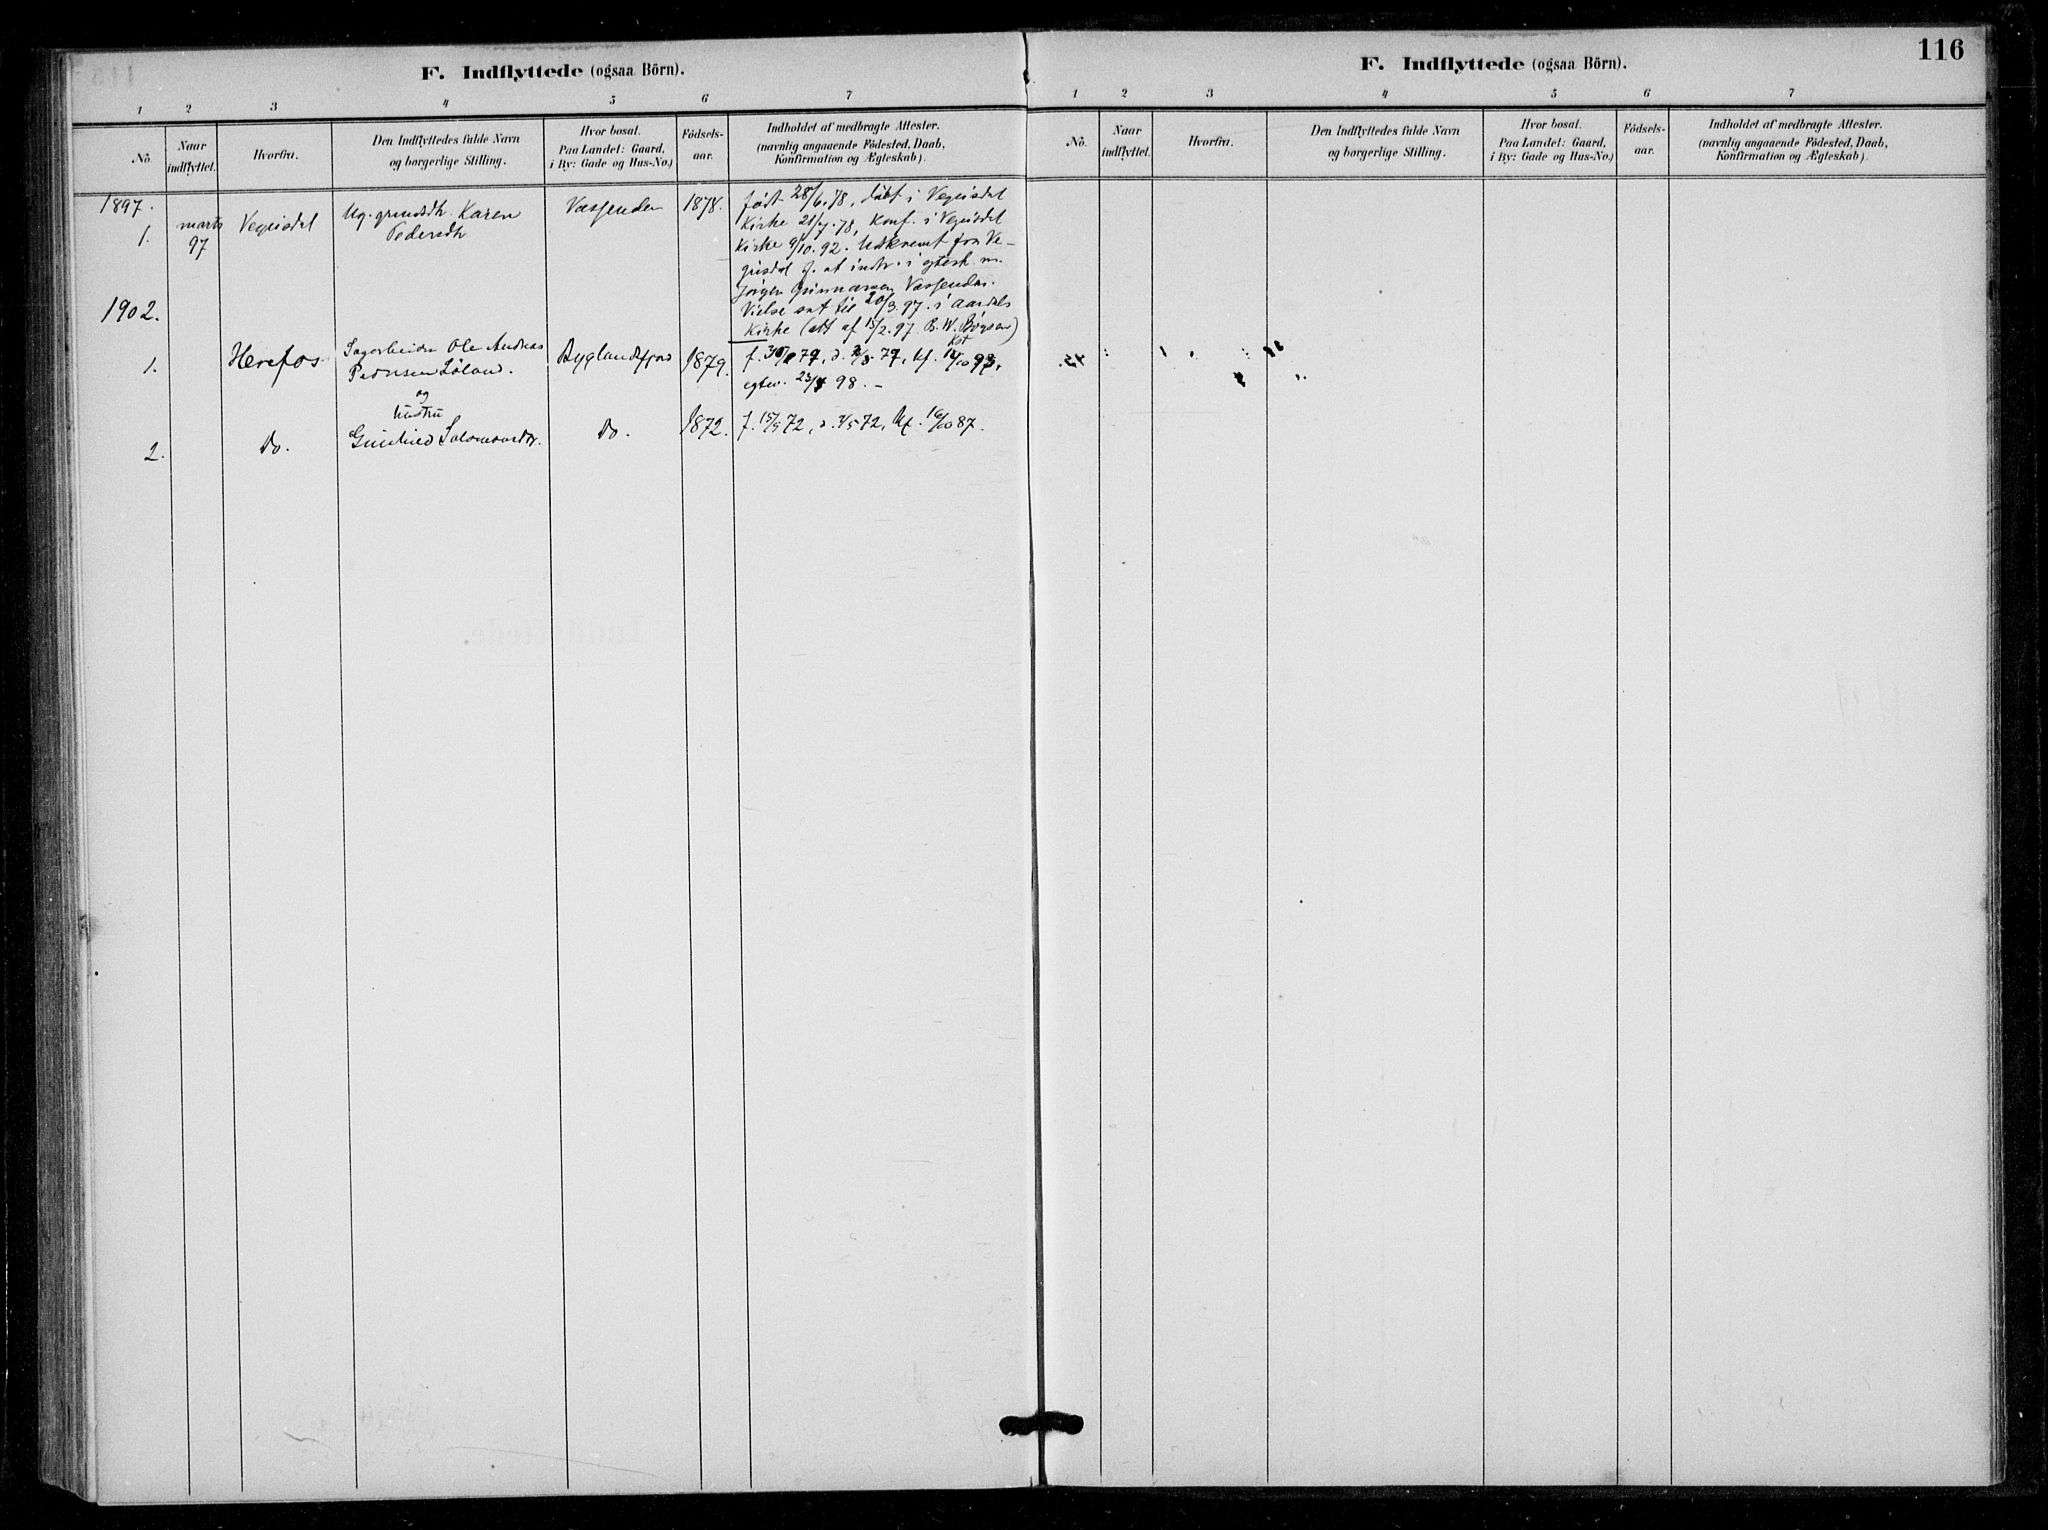 116
F. Indflyttede (ogsaa Börn).
1 2 3 4 5 6 7
No.
Naar indflyttet.
Hvorfra.
Den Indflyttedes fulde Navn
og borgerlige Stilling.
Hvor bosat.
Paa Landet: Gaard,
i By: Gade og Hus-No.)
Födsels-
aar.
Indholdet af medbragte Attester.
(navnlig angaaende Födested, Daab,
Konfirmation og Ægteskab).
1897.
1.
marts
97
Vegusdal
Ug. grmdsdtr. Karen
Pedersdtr
Vassenden
1878.
født 28/6.78, døbt i Vegusdal
Kirke 21/7.78, Konf. i Vegusdal
Kirke 9/10.92. Udskrevet fra Ve-
gusdal f. at indtr. i egtesk. m.
Jørgen Gunnarsen Vassenden.
Vielse sat til 20/3.97. i Aardals
Kirke (att af 15/2.97 B. W.
1902.
1.
Herefos
Sagarbeider Ole Andreas
Pedersen
og
hustru
Byglandsfjord
1879.
79, d. 79, kf. 93,
egtev. 98. –
2.
Do.
Gunhild Salomonsdtr.
Do.
1872.
f. 72, d. 72, kf. 87.
F. Indflyttede (ogsaa Börn).
1 2 3 4 5 6 7
No.
Naar
indflyttet.
Hvorfra.
Den Indflyttedes fulde Navn
og borgerlige Stilling.
Hvor bosat.
Paa Landet: Gaard,
i By: Gade og Hus-No.)
Födsels-
aar.
Indholdet af medbragte Attester.
(navnlig angaaende Födested, Daab,
Konfirmation og Ægteskab).